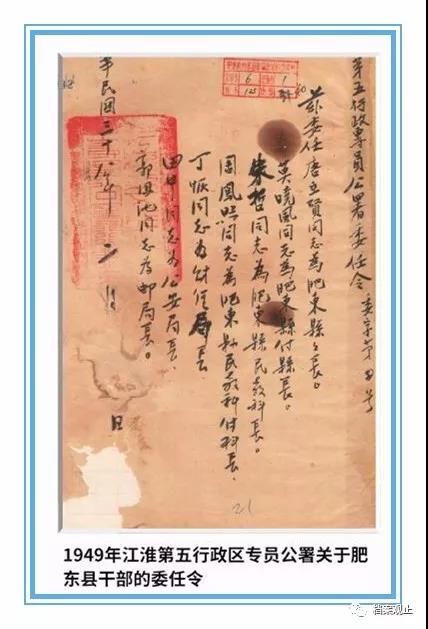 第五行政專員公署委任令
委字第 号
茲委任唐立賢同志為肥東縣々長。
英曉風同志為肥東縣付縣長。
朱哲同志為肥東縣民教科長。
周鳳鳴同志為肥東縣民教科付科長。
丁恢同志為財經局長
田中同志为公安局長、
郭 池同志为邮局長。
民國三十八年二月 日
6
1
125
21
1949年江淮第五行政区专员公署关于肥
东县干部的委任令
档案观止